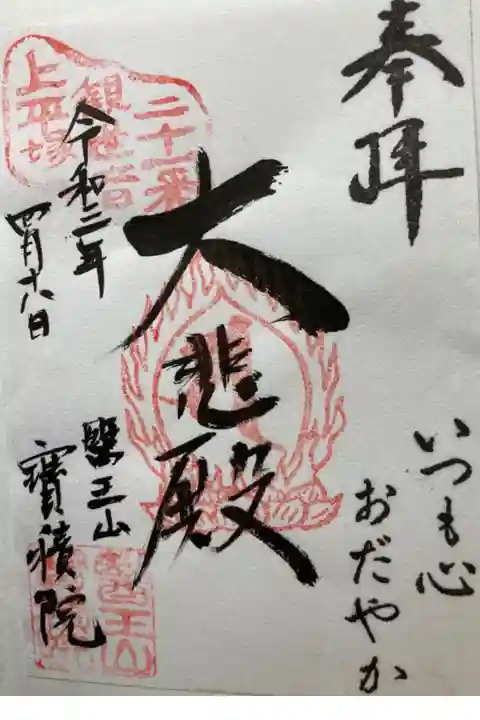 奉拝
いつも心
おだやか
大悲殿
二十一番
観世音
上平塚
令和二年
四月十八日
醫王山
寳積院
醫王山